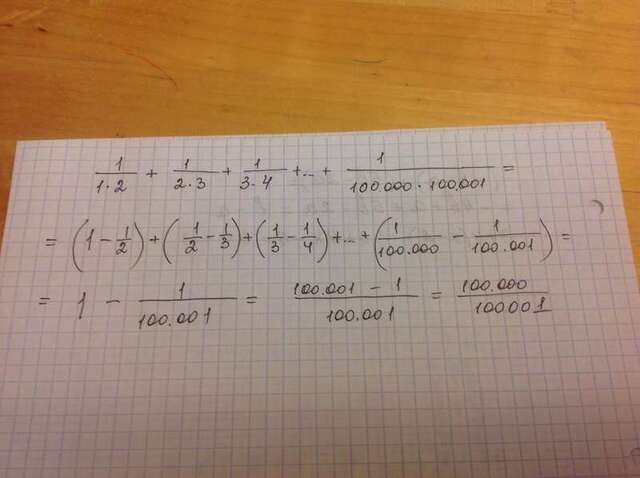 1/(1·2) + 1/(2·3) + 1/(3·4) +...+ 1/(100.000·100.001) =
= (1 - 1/2) + (1/2 - 1/3) + (1/3 - 1/4) +...+ (1/100.000 - 1/100.001) =
= 1 - 1/100.001 = (100.001 - 1)/100.001 = 100.000/100001